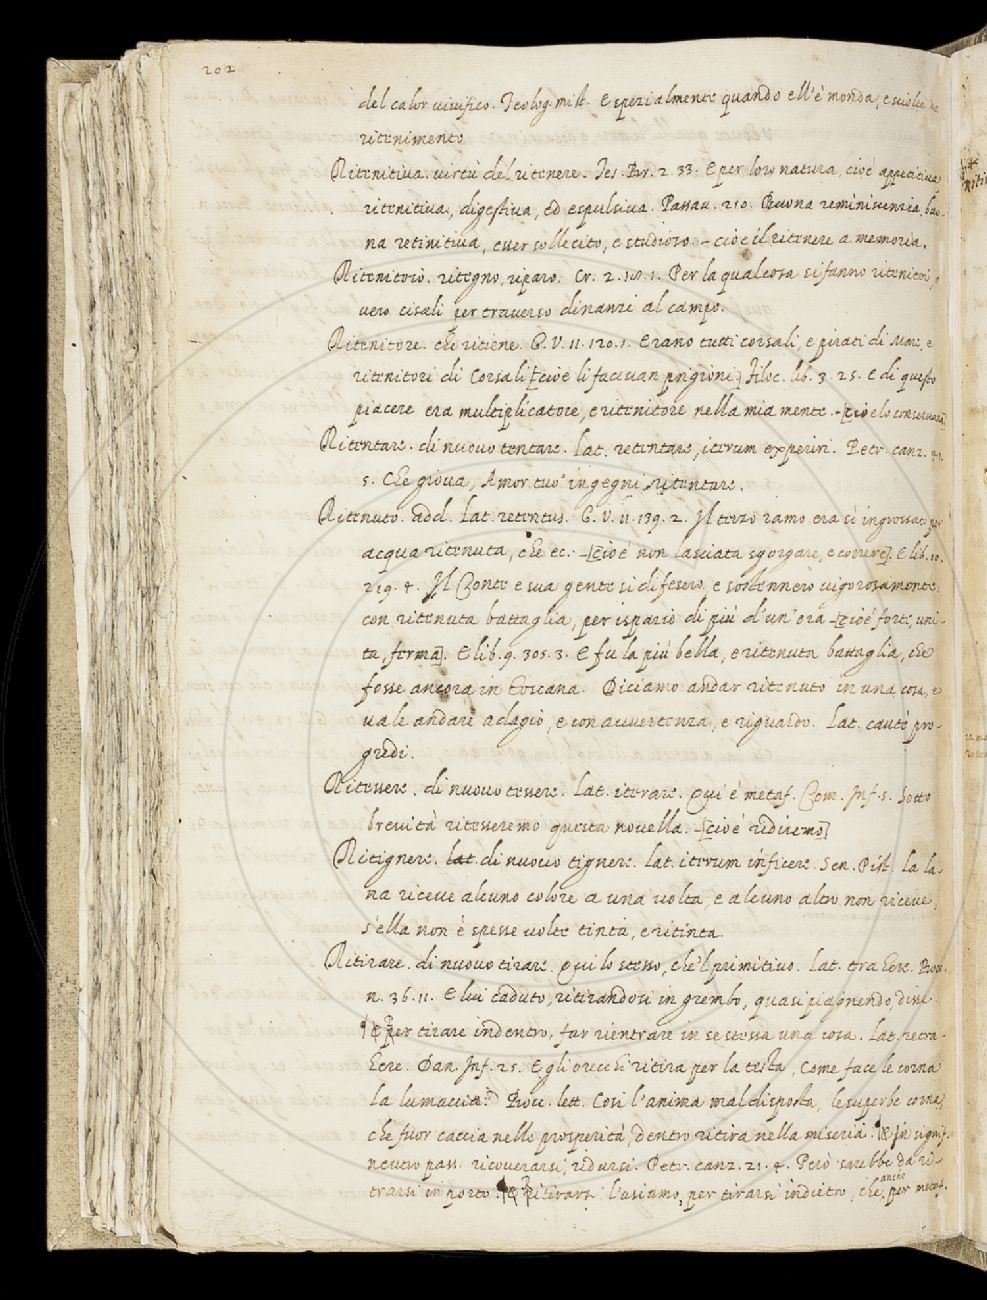 202
del calor viuifico. Teolog. mist. E spezialmente quando ell'è monda, e sciolta da
ritenimento
Ritenitiua. virtù del ritenere. Tes. Br. 2. 33. E per loro natura, cioè appetitiua
ritenitiua, digestiua, ed espulsiua. Passau. 210. Buona reminiscenzia, buo-
na retinitiua, esser sollecito, e studioso - cioè il ritenere a memoria.
Ritenitoio. ritegno, riparo. Cr. 2. 18. 1. Per la qual cosa si fanno ritenitoi, o
vero cisali per trauerso dinanzi al campo.
Ritenitore. che ritiene. G. V. 11. 120. 1. Erano tutti corsali, e pirati di Mare, e
ritenitori di Corsali [cioè li faceuan prigioni] Filoc. lib. 3. 25. E di questo
piacere era multiplicatore, e ritenitore nella mia mente. - [cioè lo conseruaua]
Ritentare. di nuouo tentare. Lat. retentare, iterum experiri. Petr. canz.
5. Che gioua, Amor tuo' ingegni ritentare.
Ritenuto. add. Lat. retentus. G. V. 11. 139. 2. Il terzo ramo era sì ingrossato per
acqua ritenuta, che ec. - [cioè non lasciata sgorgare, e correre]. E lib. 10.
219. 4. Il Conte e sua gente si difesero, e sostennero vigorosamente
con ritenuta battaglia, per ispazio di più d'un'ora - [cioè forte, uni-
ta, ferma]. E lib. 9. 305. 3. E fu la più bella, e ritenuta battaglia, che
fosse ancora in Toscana. Diciamo andar ritenuto in una cosa, e
vale andare adagio, e con auuertenza, e riguardo. Lat. cautè pro-
gredi.
Ritessere. di nuouo tessere. Lat. iterare. Qui è metaf. Com. Inf. 5. Sotto
breuità ritesseremo questa nouella. - [cioè ridiremo]
Ritignere. lat. di nuouo tignere. Lat. iterum inficere. Sen. Pist. La la-
na riceue alcuno colore a una volta, e alcuno altro non riceue,
s'ella non è spesse volte tinta, e ritinta.
Ritirare. di nuouo tirare. Qui lo stesso, che 'l primitiuo. Lat. trahere. Bocc.
n. 36. 11. E lui caduto, ritirandosi in grembo, quasi piagnendo, disse
¶ E per tirare indentro, far rientrare in se stessa una cosa. Lat. retra-
here. Dan. Inf. 25. E gli orecchi ritira per la testa, Come face le corna
La lumaccia. Bocc. lett. Così l'anima mal disposta, le superbe corna,
che fuor caccia nelle prosperità, dentro ritira nella miseria. ¶ E in signif.
neutro pass. ricouerarsi, ridursi. Petr. canz. 21. 4. Però sarebbe da ri-
trarsi in porto. ¶ E Ritirarsi l'usiamo, per tirarsi indietro, che anche per metaf.